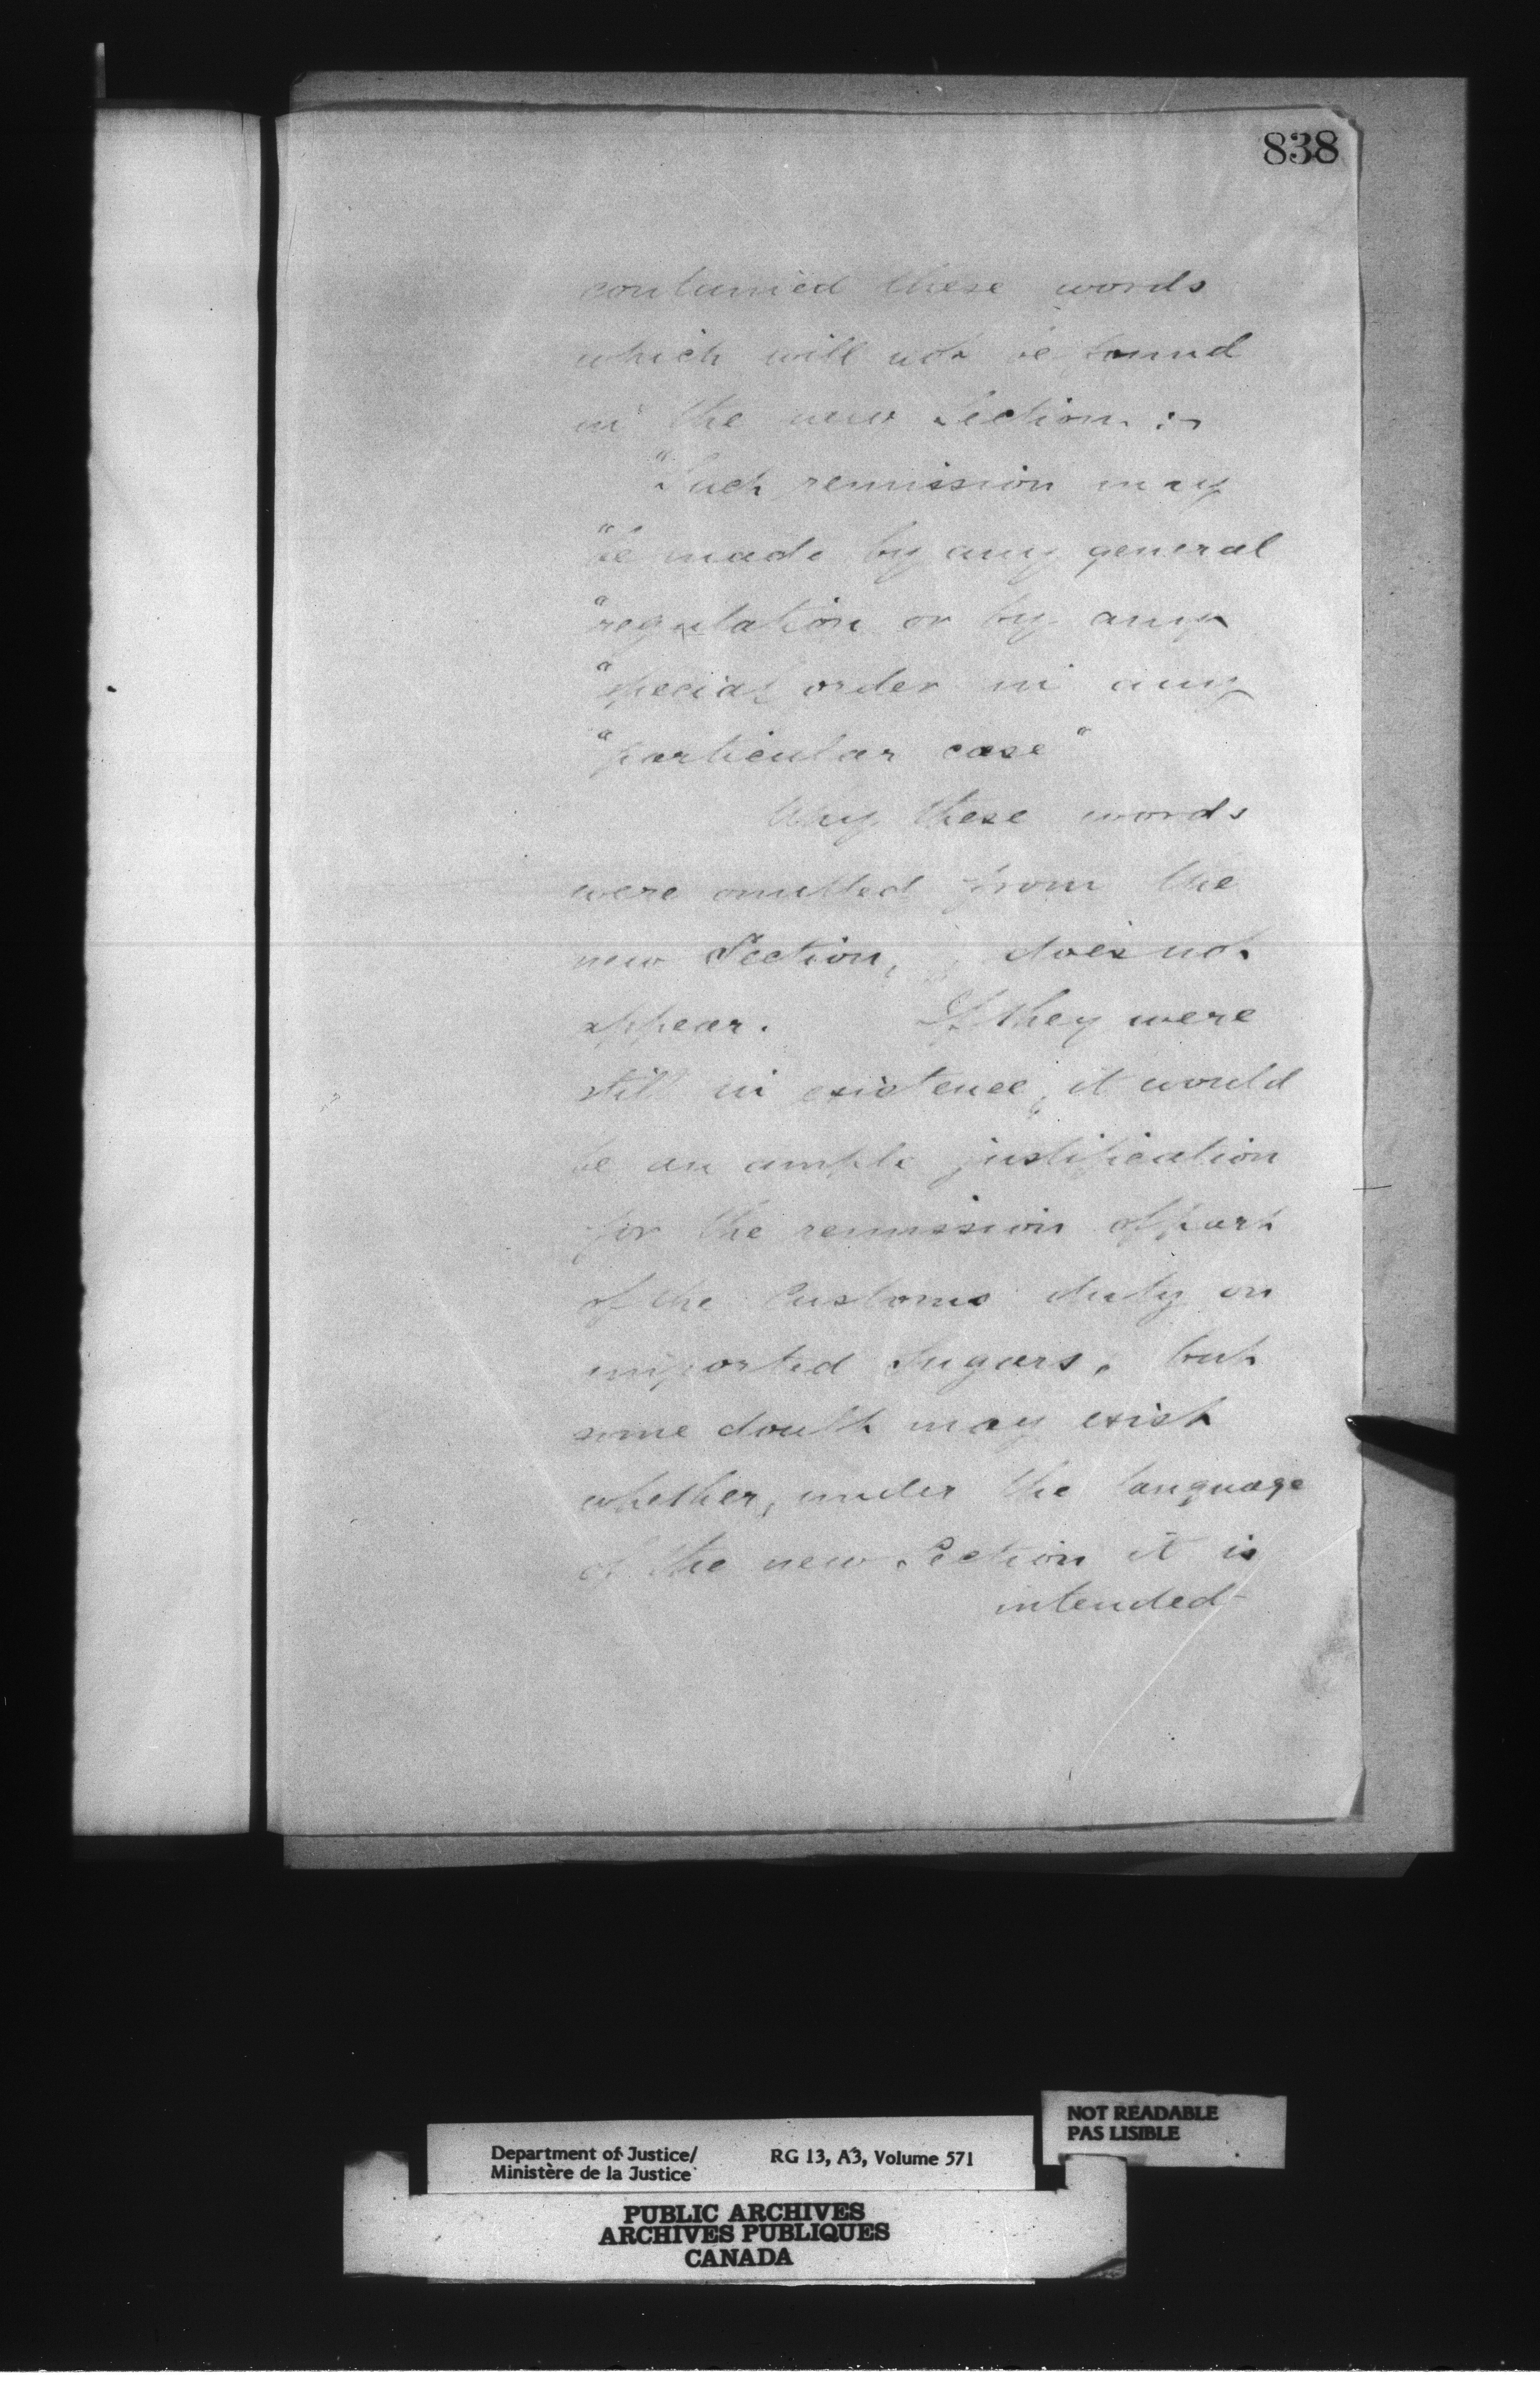 838
contained these words
which will not be found
in the new Section :-
"Such remission may
"be made by any general
"regulation or by any
"special order in any
"particular case"
Why these words
were omitted from the
new Section, does not
appear. If they were
still in existence, it would
be an ample justification
for the remission of part
of the Customs duty on
imported Sugars, but
some doubt may exist
whether, under the language
of the new Section it is
intended-
NOT READABLE
PAS LISIBLE
Department of Justice/
Ministère de la Justice
RG 13, A3, Volume 571
PUBLIC ARCHIVES
ARCHIVES PUBLIQUES
CANADA